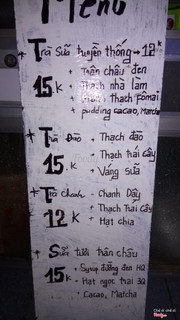 Menu
+ Trà Sữa truyền thống → 12K
15K + Trân châu đen
+ Thạch nhà làm
+ thạch fômai
+ pudding cacao, Matcha
+ Trà Đào + Thạch đào
15K + Thạch trái cây
+ Váng sữa
+ Trà chanh - Chanh Dây
12K + Thạch Trái Cây
+ Hạt chia
+ Sữa tươi trân châu
15K + Syrup đường đen HQ
+ Hạt ngọc trai 3Q
+ Cacao, Matcha